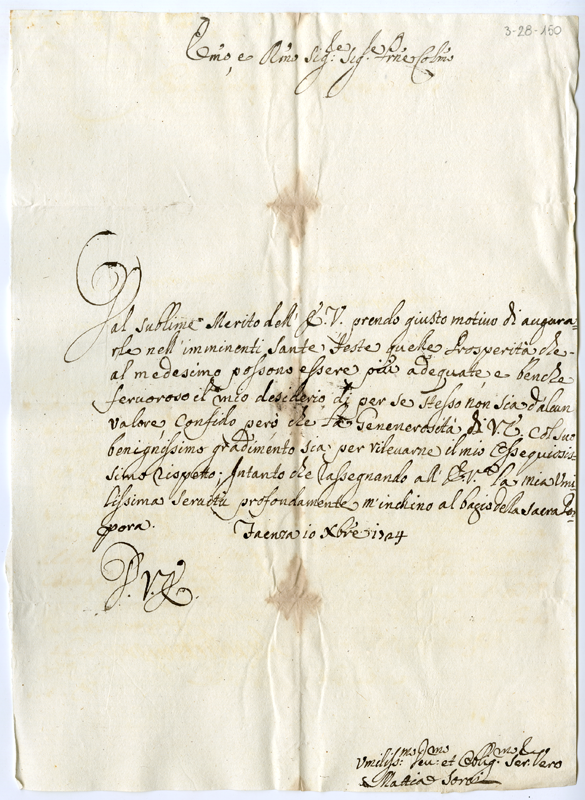 3-28-150
Emo, e Rmo Sig.re Sig.re Prne Colmo
Dal sublime Merito dell' E.V. prendo giusto motivo di augurar-
le nell' imminenti Sante Feste quelle Prosperità che
al medesimo possono essere più adequate e benche
feruoroso il mio desiderio di per se stesso non sia d'alcun
valore Confido però che la Genenerosità di V.E. col suo
benignissimo gradimento sia per rileuarne il mio Ossequiosis-
simo rispetto; Intanto che rassegnando all' E.V. la mia Vmi
lissima seruitù profondamente m'inchino al bacio della sacra Por-
pora. Faenza 10 Xbre 1704
D. V. E.
Vmiliss.mo Deu.mo et Oblig.mo Ser.re Vero
Mattia